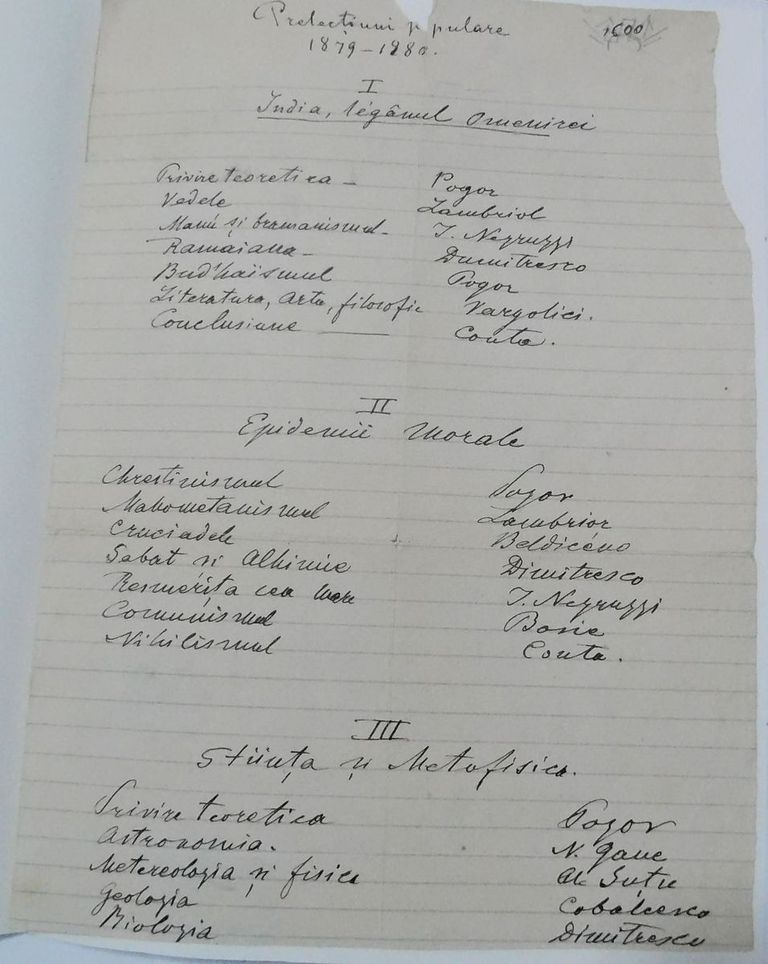 Prelecțiuni populare
1600
1879-1880.
I
India, légânul omenirei
Privire teoretica - Pogor
Vedele Lambrior
Manú și bramanismul - I. Negruzzi
Ramaiana - Dumitresco
Bud'haïsmul Pogor
Literatura, Arta, filosofie Vargolici.
Conclusiune Conta.
II
Epidemii Morale
Chrestinismul Pogor
Mahometanismul Lambrior
Cruciadele Beldicéno
Sabat si Alhimie Dimitresco
Resmerița cea mare I. Negruzzi
Comunismul Bosie
Nihilismul Conta.
III
Stiința și Metafisica.
Privire teoretica Pogor
Astronomia. N. Gane
Metereologia și fisica Al. Suțu
Geologia Cobalcesco
Biologia Dimitrescu